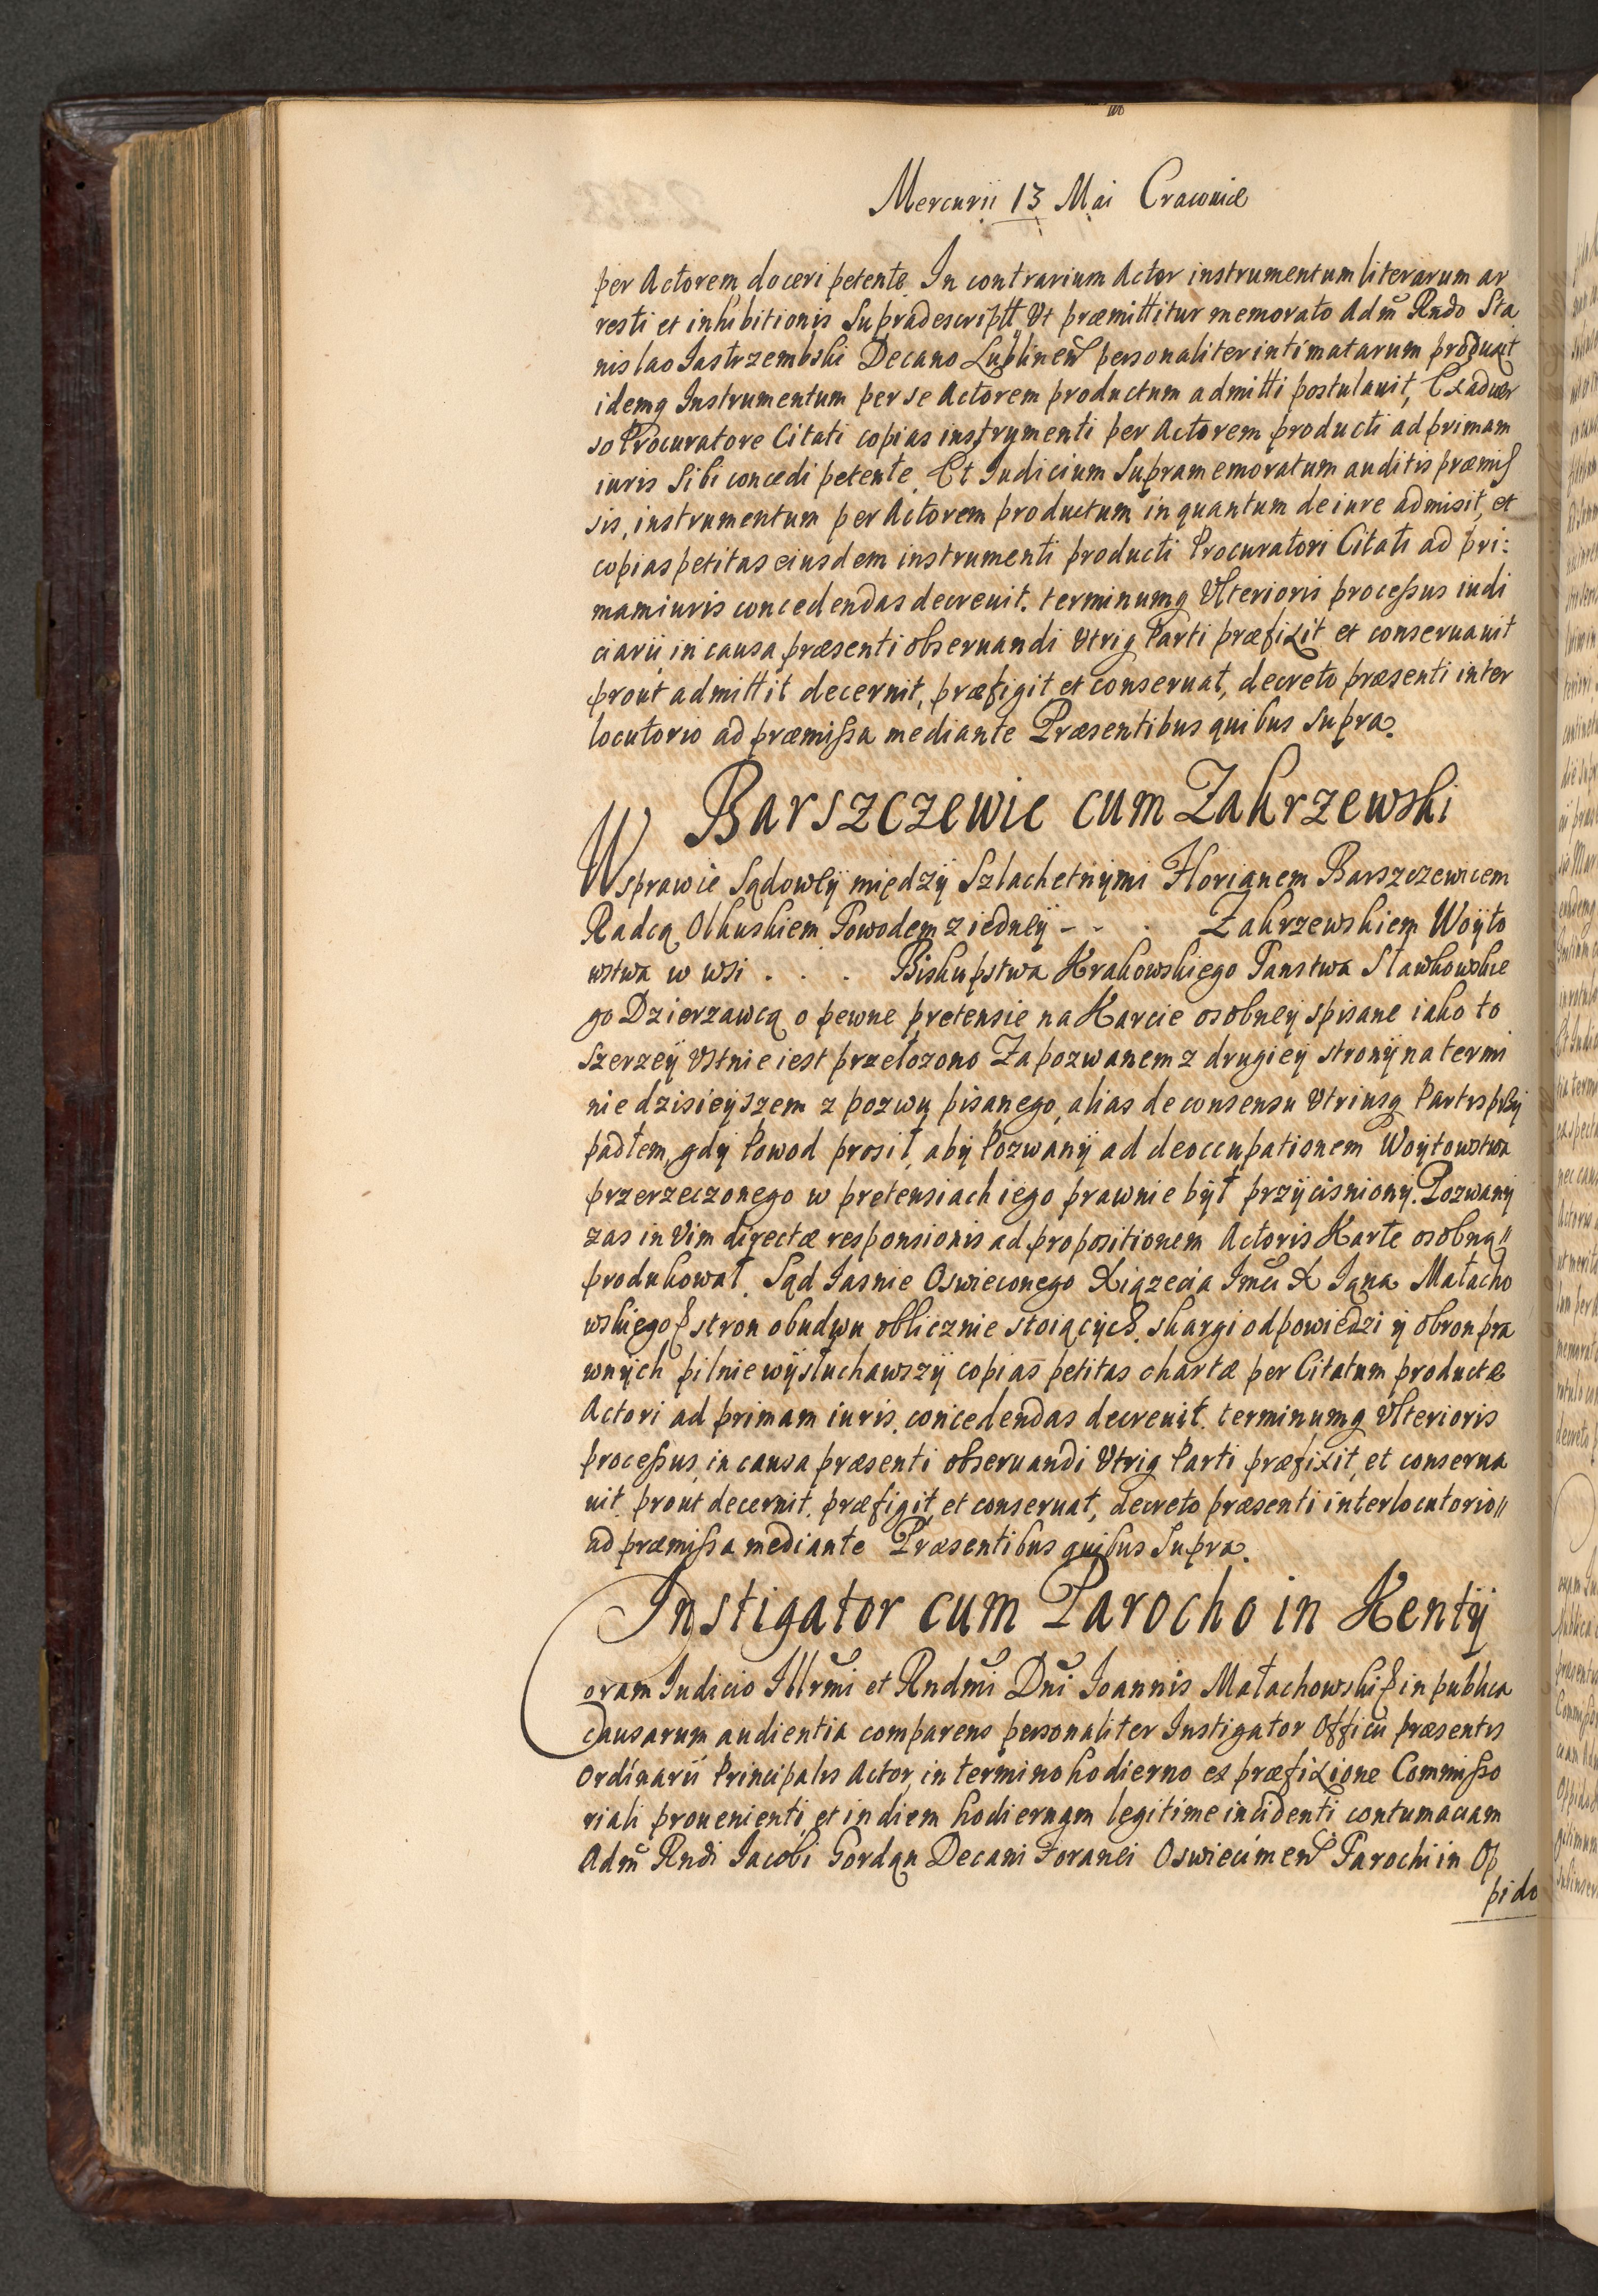 Mercurii 13 Mai Cracoviæ
per Actorem doceri petente. In contrarium Actor instrumentum literarum ar
resti et inhibitionis supradescriptt Vt præmittitur memorato Adm̃ Rndo Sta
nislao Jastrzembski Decano Lublineñ personaliter intimatarum produxit
idemq Instrumentum per se Actorem productum admitti postulauit, Ex aduer
so Procuratore Citati copias instrumenti per Actorem producti ad primam
iuris sibi concedi petente. Et Iudicium supramemoratum auditis præmis
sis, instrumentum per Actorem productum in quantum de iure admisit, et
copias petitas eiusdem instrumenti producti Procuratori Citati ad pri:
mam iuris concedendas decreuit. terminumq Vlterioris processus iudi
ciarii in causa præsenti obseruandi Vtriq Parti præfixit et conseruauit
prout admittit decernit, præfigit et conseruat, decreto præsenti inter
locutorio ad præmissa mediante Præsentibus quibus supra.
Barszczewic cum Zakrzewski
W sprawie Sądowey między Szlachetnymi Florianem Barszczewicem
Radcą Olkuskiem Powodem z iedney - - . Zakrzewskiem Woyto
wstwa w wsi . . . Biskupstwa Krakowskiego Panstwa Sławkowskie
go Dzierzawcą o pewne pretensie na Karcie osobney spisane iako to
szerzey Vstnie iest przełozono Zapozwanem z drugiey strony na termi
nie dzisieyszem z pozwu pisanego, alias de consensu Vtriusq Partis przy
padłem, gdy Powod prosił, aby Pozwany ad deoccupationem Woytowstwa
przerzeczonego w pretensiach iego prawnie był przycisniony. Pozwany
zas in Vim directæ responsionis ad propositionem Actoris Karte osobną
produkował. Sąd Iasnie Oswieconego Xiązecia Imći X Iana Małacho
wskiego stron obudwu oblicznie stoiących. skargi odpowiedzi y obron pra
wnych pilnie wysłuchawszy copias petitas chartæ per Citatum productæ
Actori ad primam iuris concedendas decreuit. terminumq Vlterioris
processus in causa præsenti obseruandi Vtriq Parti præfixit, et conserua
uit. prout decernit, præfigit, et conseruat, decreto præsenti interlocutorio
ad præmissa mediante Præsentibus quibus supra.
Instigator cum Parocho in Kenty
Coram Iudicio Illrmi et Rndmi Dni Ioannis Małachowski in publica
Causarum audientia comparens personaliter Instigator Officii præsentis
Ordinarii Principalis Actor, in termino hodierno ex præfixione Commisso
riali prouenienti, et in diem hodiernam legitime incidenti contumaciam
Adm̃ Rndi Iacobi Gordan Decani Foranei Oswiecimeñ Parochi in Op
pido